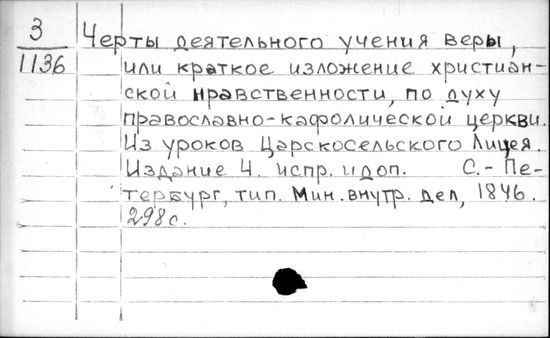 3
1136
Черты деятельного учения веры,
или краткое изложение христиан-
ской нравственности, по духу
православно-кафолической церкви.
Из уроков Царскосельского Лицея.
Издание 4. испр. и доп. С.-Пе-
тербург, тип. Мин. внутр. дел, 1846.
298 с.